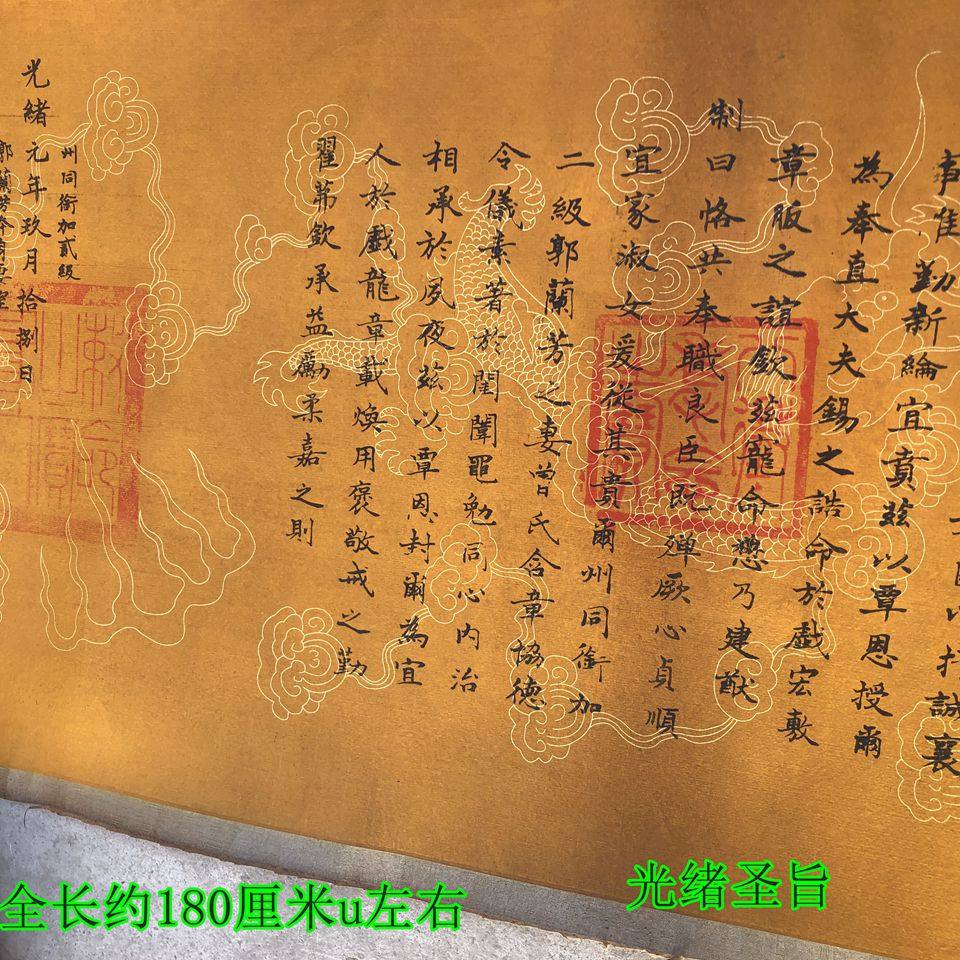 抒誠襄
事惟勤新綸宜賁茲以覃恩授爾
為奉直大夫錫之誥命於戲宏敷
章服之誼欽茲龍命懋乃建猷
制曰恪共奉職良臣既殫厥心貞順
宜家淑女爰從其貴爾州同銜加
二級郭蘭芳之妻曾氏含章協德
令儀素著於閨闈黽勉同心內治
相承於夙夜茲以覃恩封爾為宜
人於戲龍章載煥用褒敬戒之勤
翟茀欽承益勵柔嘉之則
州同銜加貳級
光緒元年玖月拾捌日
郭蘭芳
全长约180厘米u左右
光绪圣旨